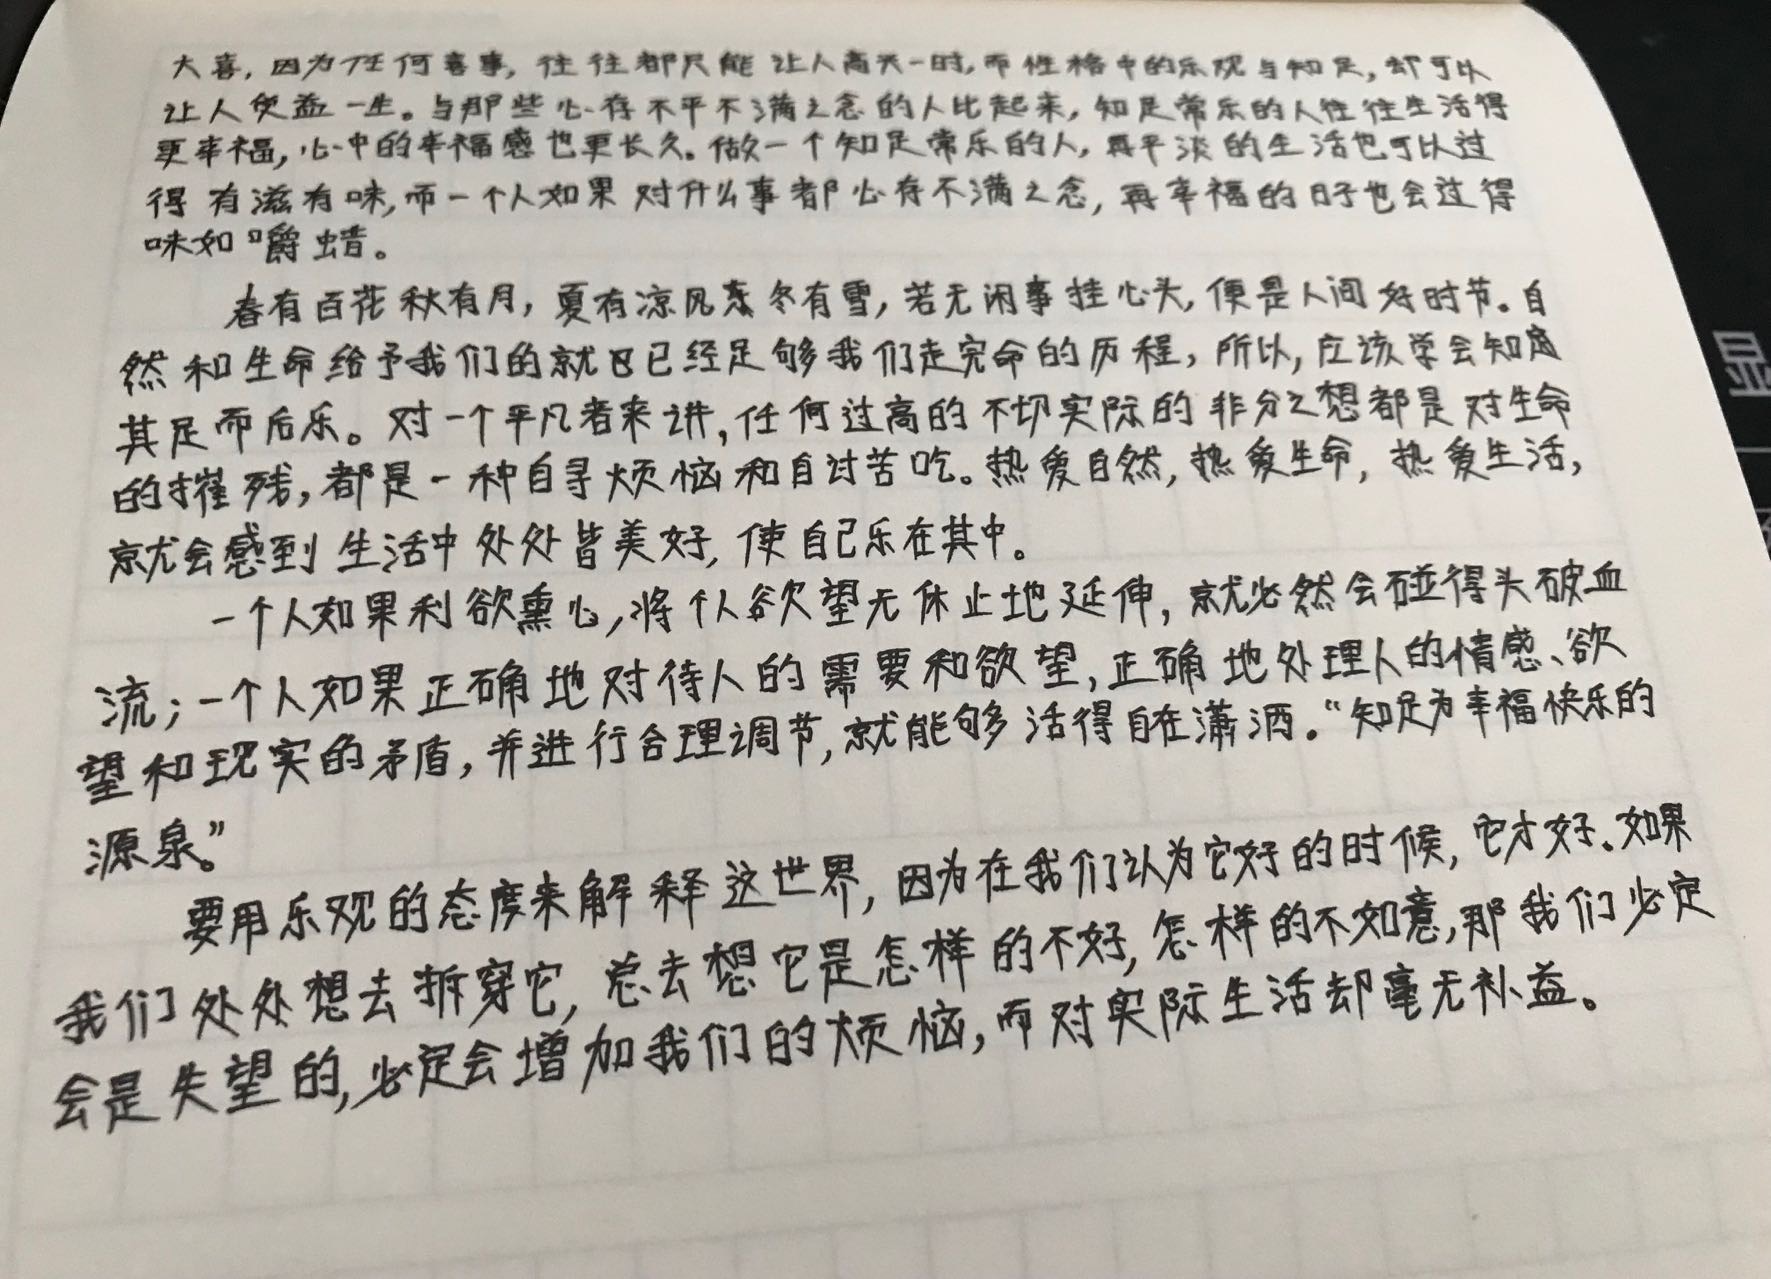 大喜，因为任何喜事，往往都只能让人高兴一时，而性格中的乐观与知足，却可以
让人受益一生。与那些心存不平不满之念的人比起来，知足常乐的人往往生活得
更幸福，心中的幸福感也更长久。做一个知足常乐的人，再平淡的生活也可以过
得有滋有味，而一个人如果对什么事都心存不满之念，再幸福的日子也会过得
味如嚼蜡。
春有百花秋有月，夏有凉风冬有雪，若无闲事挂心头，便是人间好时节。自
然和生命给予我们的就已经足够我们走完命的历程，所以，应该学会知足
其足而后乐。对一个平凡者来讲，任何过高的不切实际的非分之想都是对生命
的摧残，都是一种自寻烦恼和自讨苦吃。热爱自然，热爱生命，热爱生活，
就会感到生活中处处皆美好，使自己乐在其中。
一个人如果利欲熏心，将个人欲望无休止地延伸，就必然会碰得头破血
流；一个人如果正确地对待人的需要和欲望，正确地处理人的情感、欲
望和现实的矛盾，并进行合理调节，就能够活得自在潇洒。“知足为幸福快乐的
源泉。”
要用乐观的态度来解释这世界，因为在我们认为它好的时候，它才好。如果
我们处处想去拆穿它，总去想它是怎样的不好，怎样的不如意，那我们必定
会是失望的，必定会增加我们的烦恼，而对实际生活却毫无补益。
显